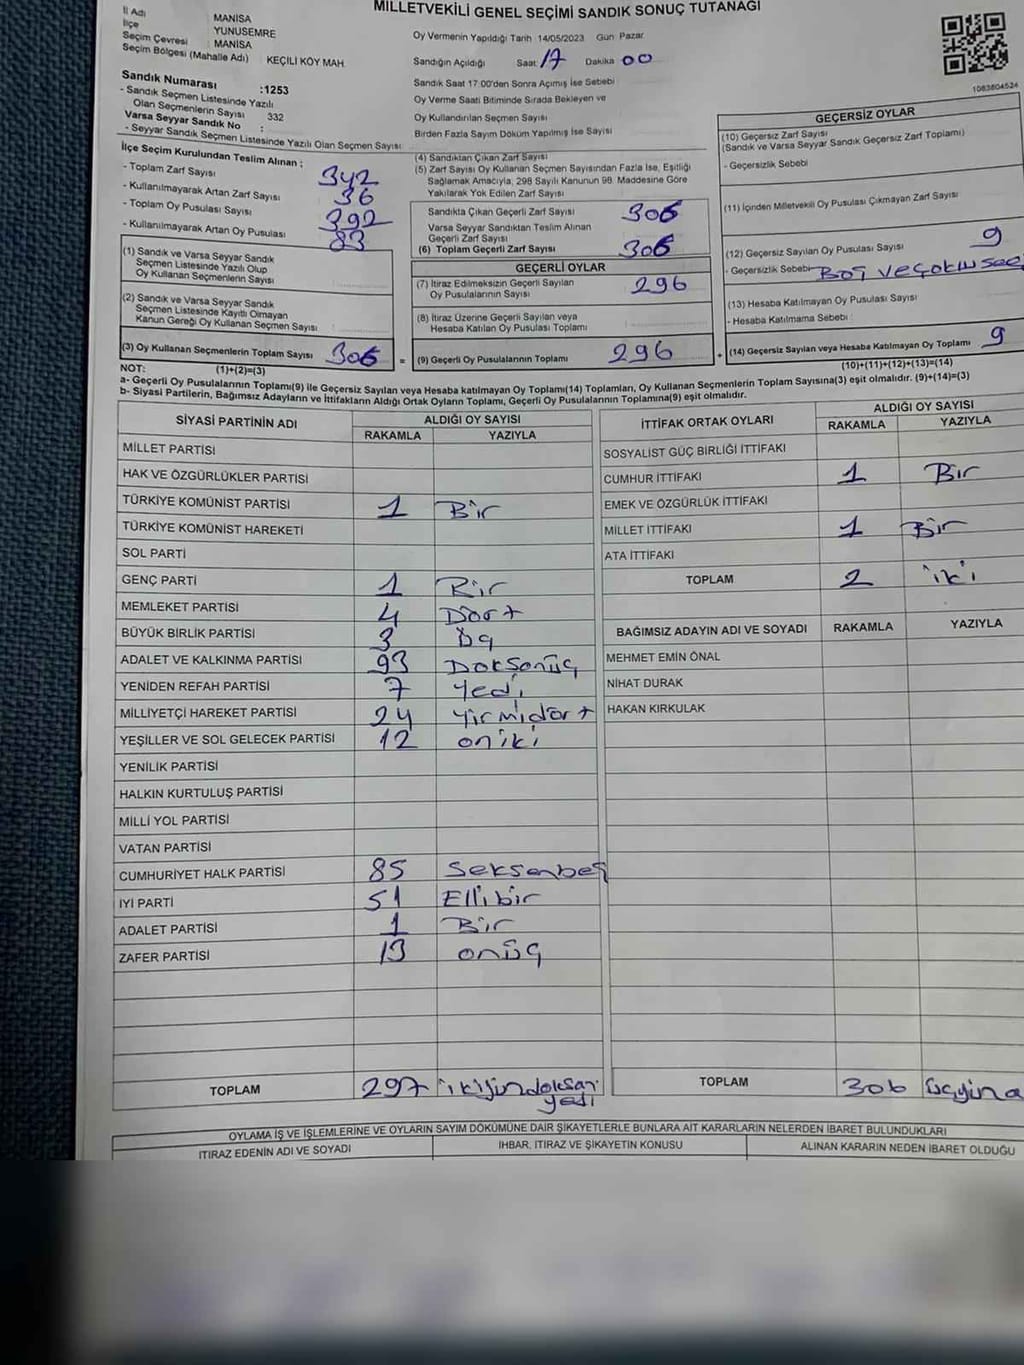 MİLLETVEKİLİ GENEL SEÇİMİ SANDIK SONUÇ TUTANAĞI
İl Adı MANİSA
İlçe YUNUSEMRE
Seçim Çevresi : MANİSA
Seçim Bölgesi (Mahalle Adı) KEÇİLİ KÖY MAH.
Sandık Numarası :1253
- Sandık Seçmen Listesinde Yazılı
Olan Seçmenlerin Sayısı 332
Varsa Seyyar Sandık No :
- Seyyar Sandık Seçmen Listesinde Yazılı Olan Seçmen Sayısı
İlçe Seçim Kurulundan Teslim Alınan ;
- Toplam Zarf Sayısı 342
- Kullanılmayarak Artan Zarf Sayısı 36
- Toplam Oy Pusulası Sayısı 392
- Kullanılmayarak Artan Oy Pusulası 83
(1) Sandık ve Varsa Seyyar Sandık
Seçmen Listesinde Yazılı Olup
Oy Kullanan Seçmenlerin Sayısı
(2) Sandık ve Varsa Seyyar Sandık
Seçmen Listesinde Kayıtlı Olmayan
Kanun Gereği Oy Kullanan Seçmen Sayısı
(3) Oy Kullanan Seçmenlerin Toplam Sayısı 306 =
Oy Vermenin Yapıldığı Tarih 14/05/2023 Gün Pazar
Sandığın Açıldığı Saat 17 Dakika 00
Sandık Saat 17:00'den Sonra Açımış İse Sebebi
Oy Verme Saati Bitiminde Sırada Bekleyen ve
Oy Kullandırılan Seçmen Sayısı
Birden Fazla Sayım Döküm Yapılmış İse Sayısı
(4) Sandıktan Çıkan Zarf Sayısı
(5) Zarf Sayısı Oy Kullanan Seçmen Sayısından Fazla İse, Eşitliği
Sağlamak Amacıyla, 298 Sayılı Kanunun 98. Maddesine Göre
Yakılarak Yok Edilen Zarf Sayısı
Sandıkta Çıkan Geçerli Zarf Sayısı 306
Varsa Seyyar Sandıktan Teslim Alınan
Geçerli Zarf Sayısı
(6) Toplam Geçerli Zarf Sayısı 306
GEÇERLİ OYLAR
(7) İtiraz Edilmeksizin Geçerli Sayılan
Oy Pusulalarının Sayısı 296
(8) İtiraz Üzerine Geçerli Sayılan veya
Hesaba Katılan Oy Pusulası Toplamı
(9) Geçerli Oy Pusulalarının Toplamı 296 +
1083804524
GEÇERSİZ OYLAR
(10) Geçersiz Zarf Sayısı
(Sandık ve Varsa Seyyar Sandık Geçersiz Zarf Toplamı)
- Geçersizlik Sebebi
(11) İçinden Milletvekili Oy Pusulası Çıkmayan Zarf Sayısı
(12) Geçersiz Sayılan Oy Pusulası Sayısı 9
- Geçersizlik Sebebi Boş ve çokun
(13) Hesaba Katılmayan Oy Pusulası Sayısı
- Hesaba Katılmama Sebebi :
(14) Geçersiz Sayılan veya Hesaba Katılmayan Oy Toplamı 9
NOT: (1)+(2)=(3) (10)+(11)+(12)+(13)=(14)
a- Geçerli Oy Pusulalarının Toplamı(9) ile Geçersiz Sayılan veya Hesaba katılmayan Oy Toplamı(14) Toplamları, Oy Kullanan Seçmenlerin Toplam Sayısına(3) eşit olmalıdır. (9)+(14)=(3)
b- Siyasi Partilerin, Bağımsız Adayların ve İttifakların Aldığı Ortak Oyların Toplamı, Geçerli Oy Pusulalarının Toplamına(9) eşit olmalıdır.
SİYASİ PARTİNİN ADI ALDIĞI OY SAYISI
RAKAMLA YAZIYLA
MİLLET PARTİSİ
HAK VE ÖZGÜRLÜKLER PARTİSİ
TÜRKİYE KOMÜNİST PARTİSİ 1 Bir
TÜRKİYE KOMÜNİST HAREKETİ
SOL PARTİ
GENÇ PARTİ 1 Bir
MEMLEKET PARTİSİ 4 Dört
BÜYÜK BİRLİK PARTİSİ 3 üç
ADALET VE KALKINMA PARTİSİ 93 Doksanüç
YENİDEN REFAH PARTİSİ 7 Yedi
MİLLİYETÇİ HAREKET PARTİSİ 24 Yirmidört
YEŞİLLER VE SOL GELECEK PARTİSİ 12 oniki
YENİLİK PARTİSİ
HALKIN KURTULUŞ PARTİSİ
MİLLİ YOL PARTİSİ
VATAN PARTİSİ
CUMHURİYET HALK PARTİSİ 85 Seksenbeş
İYİ PARTİ 51 Ellibir
ADALET PARTİSİ 1 Bir
ZAFER PARTİSİ 13 onüç
TOPLAM 297 ikiyüzdoksan
yedi
İTTİFAK ORTAK OYLARI ALDIĞI OY SAYISI
RAKAMLA YAZIYLA
SOSYALİST GÜÇ BİRLİĞİ İTTİFAKI
CUMHUR İTTİFAKI 1 Bir
EMEK VE ÖZGÜRLÜK İTTİFAKI
MİLLET İTTİFAKI 1 Bir
ATA İTTİFAKI
TOPLAM 2 iki
BAĞIMSIZ ADAYIN ADI VE SOYADI RAKAMLA YAZIYLA
MEHMET EMİN ÖNAL
NİHAT DURAK
HAKAN KIRKULAK
TOPLAM 306
OYLAMA İŞ VE İŞLEMLERİNE VE OYLARIN SAYIM DÖKÜMÜNE DAİR ŞİKAYETLERLE BUNLARA AİT KARARLARIN NELERDEN İBARET BULUNDUKLARI
İTİRAZ EDENİN ADI VE SOYADI İHBAR, İTİRAZ VE ŞİKAYETİN KONUSU ALINAN KARARIN NEDEN İBARET OLDUĞU